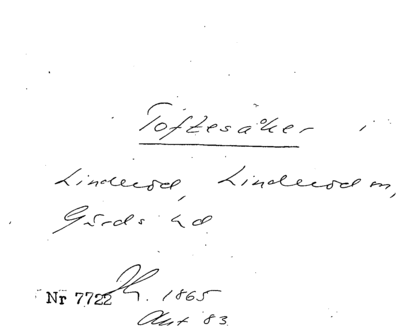 Toftesåker i
Linderöd, Linderöd sn,
Gärds hd
Nr 7722 Jh. 1865
Akt 83